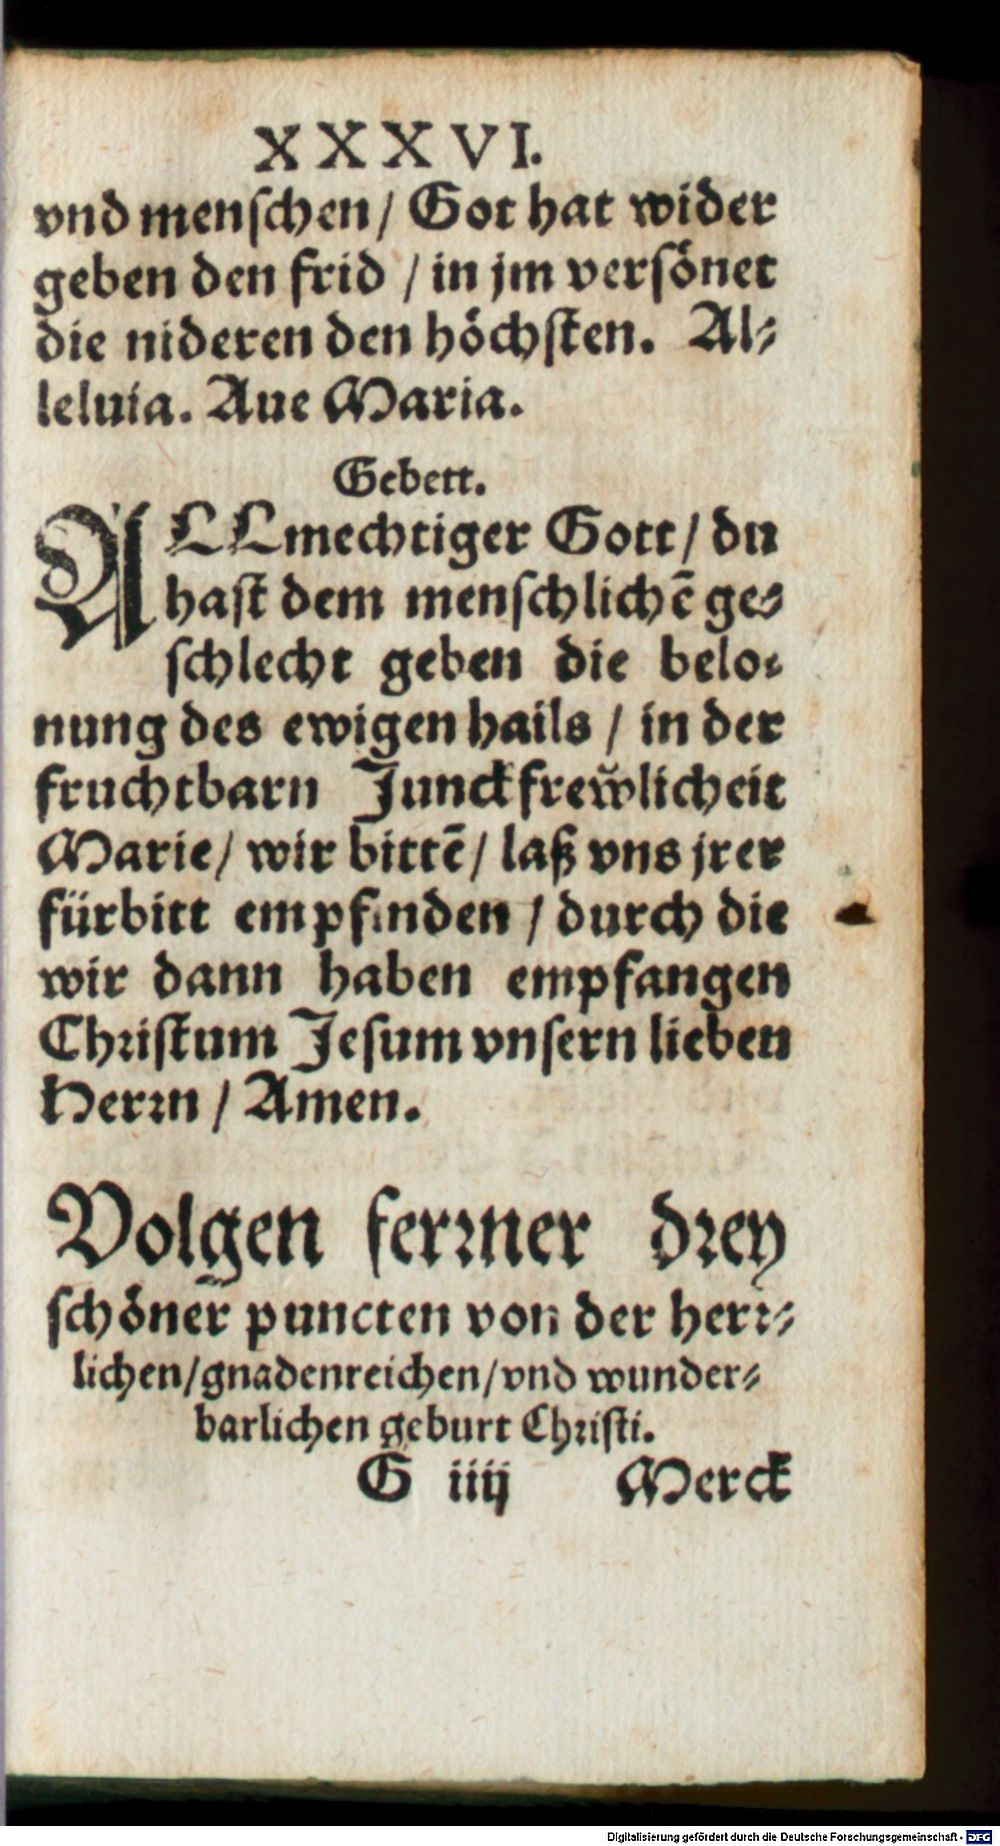 XXXVI.
vnd menſchen / Got hat wider
geben den frid / in jm verſoͤnet
die nideren den hoͤchſten. Al⸗
leluia. Aue Maria.
Gebett.
ALLmechtiger Gott / du
haſt dem menſchlichē ge⸗
ſchlecht geben die belo⸗
nung des ewigen hails / in der
fruchtbarn Junckfrew̆licheit
Marie / wir bittē / laß vns jrer
fürbitt empfinden / durch die
wir dann haben empfangen
Chꝛiſtum Jeſum vnſern lieben
Herꝛn / Amen.
Volgen ferꝛner dꝛey
ſchoͤner puncten von der herꝛ⸗
lichen / gnadenreichen / vnd wunder⸗
barlichen geburt Chꝛiſti.
G iiij Merck
Digitalisierung gefördert durch die Deutsche Forschungsgemeinschaft - DFG